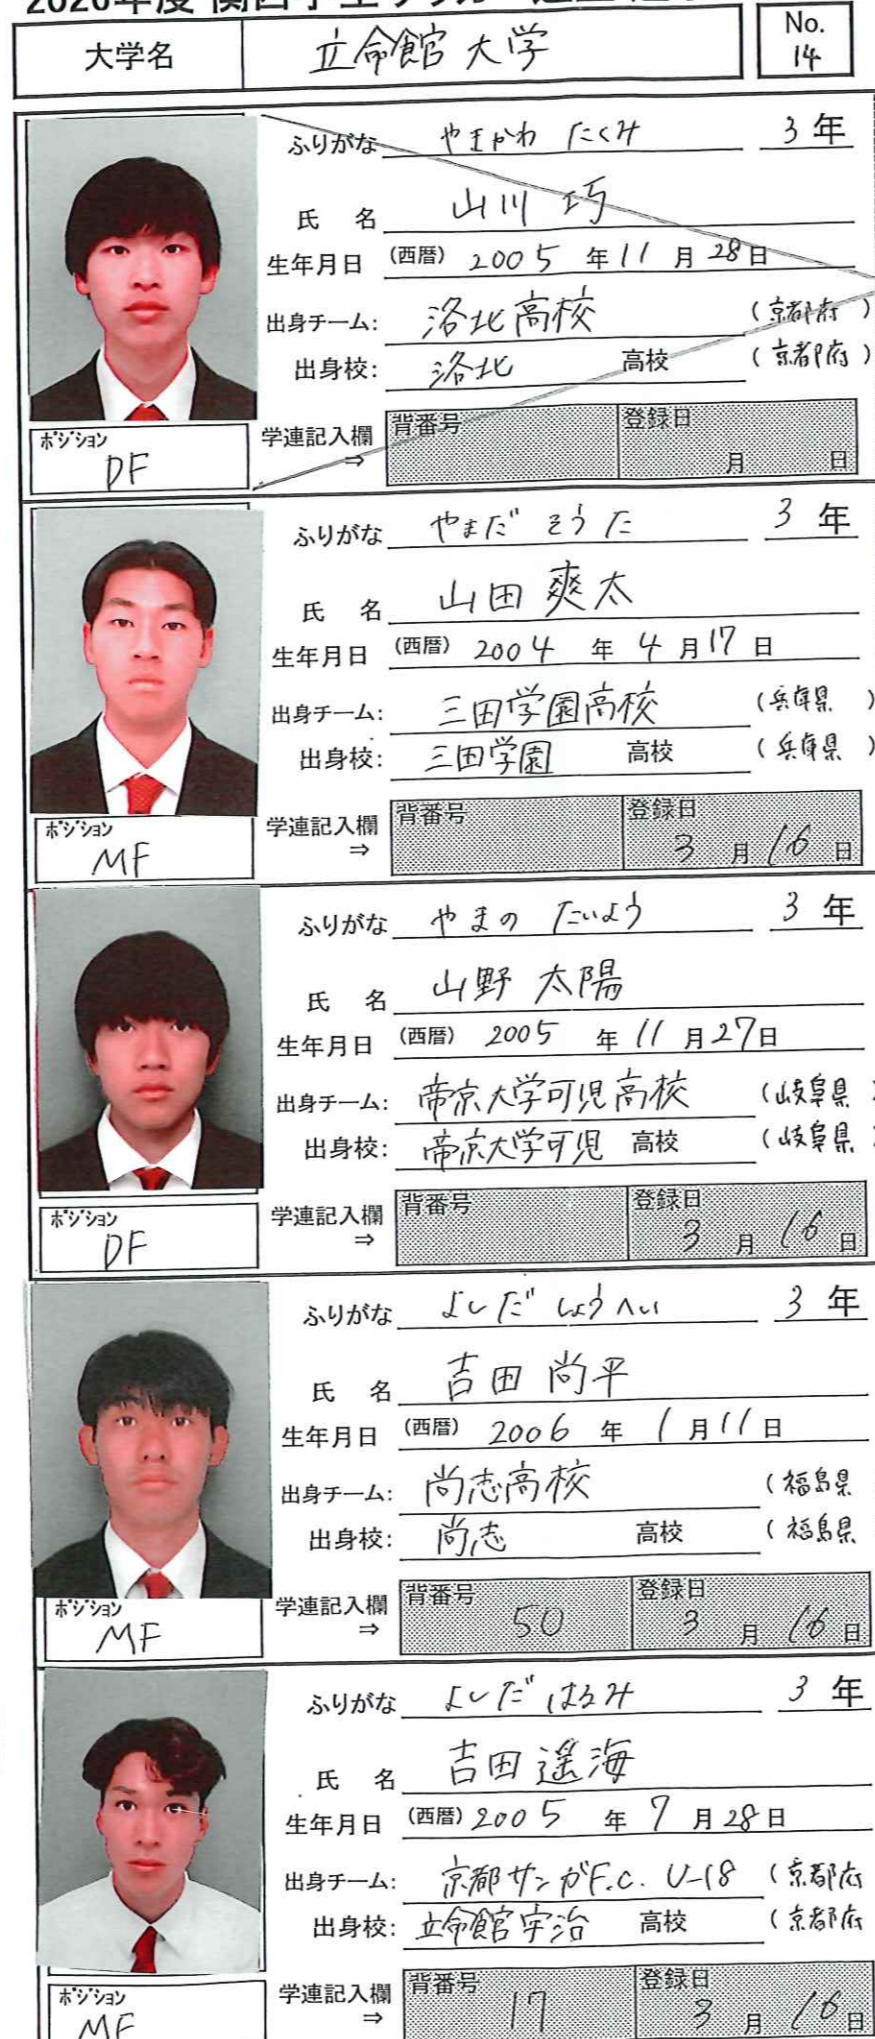 2026年度 関西学生サッカー連盟
大学名 立命館大学 No. 14
ふりがな やまかわ たくみ 3年
氏 名 山川 巧
生年月日 (西暦) 2005 年 11 月 28 日
出身チーム: 洛北高校 (京都府)
出身校: 洛北 高校 (京都府)
ポジション DF 学連記入欄 ⇒ 背番号 登録日 月 日
ふりがな やまだ そうた 3年
氏 名 山田 爽太
生年月日 (西暦) 2004 年 4 月 17 日
出身チーム: 三田学園高校 (兵庫県)
出身校: 三田学園 高校 (兵庫県)
ポジション MF 学連記入欄 ⇒ 背番号 登録日 3 月 16 日
ふりがな やまの たいよう 3年
氏 名 山野 太陽
生年月日 (西暦) 2005 年 11 月 27 日
出身チーム: 帝京大学可児高校 (岐阜県
出身校: 帝京大学可児 高校 (岐阜県
ポジション DF 学連記入欄 ⇒ 背番号 登録日 3 月 16 日
ふりがな よしだ しょうへい 3年
氏 名 吉田 尚平
生年月日 (西暦) 2006 年 1 月 11 日
出身チーム: 尚志高校 (福島県
出身校: 尚志 高校 (福島県
ポジション MF 学連記入欄 ⇒ 背番号 50 登録日 3 月 16 日
ふりがな よしだ はるみ 3年
氏 名 吉田 遥海
生年月日 (西暦) 2005 年 7 月 28 日
出身チーム: 京都サンガF.C. U-18 (京都府
出身校: 立命館宇治 高校 (京都府
ポジション MF 学連記入欄 ⇒ 背番号 17 登録日 3 月 16 日